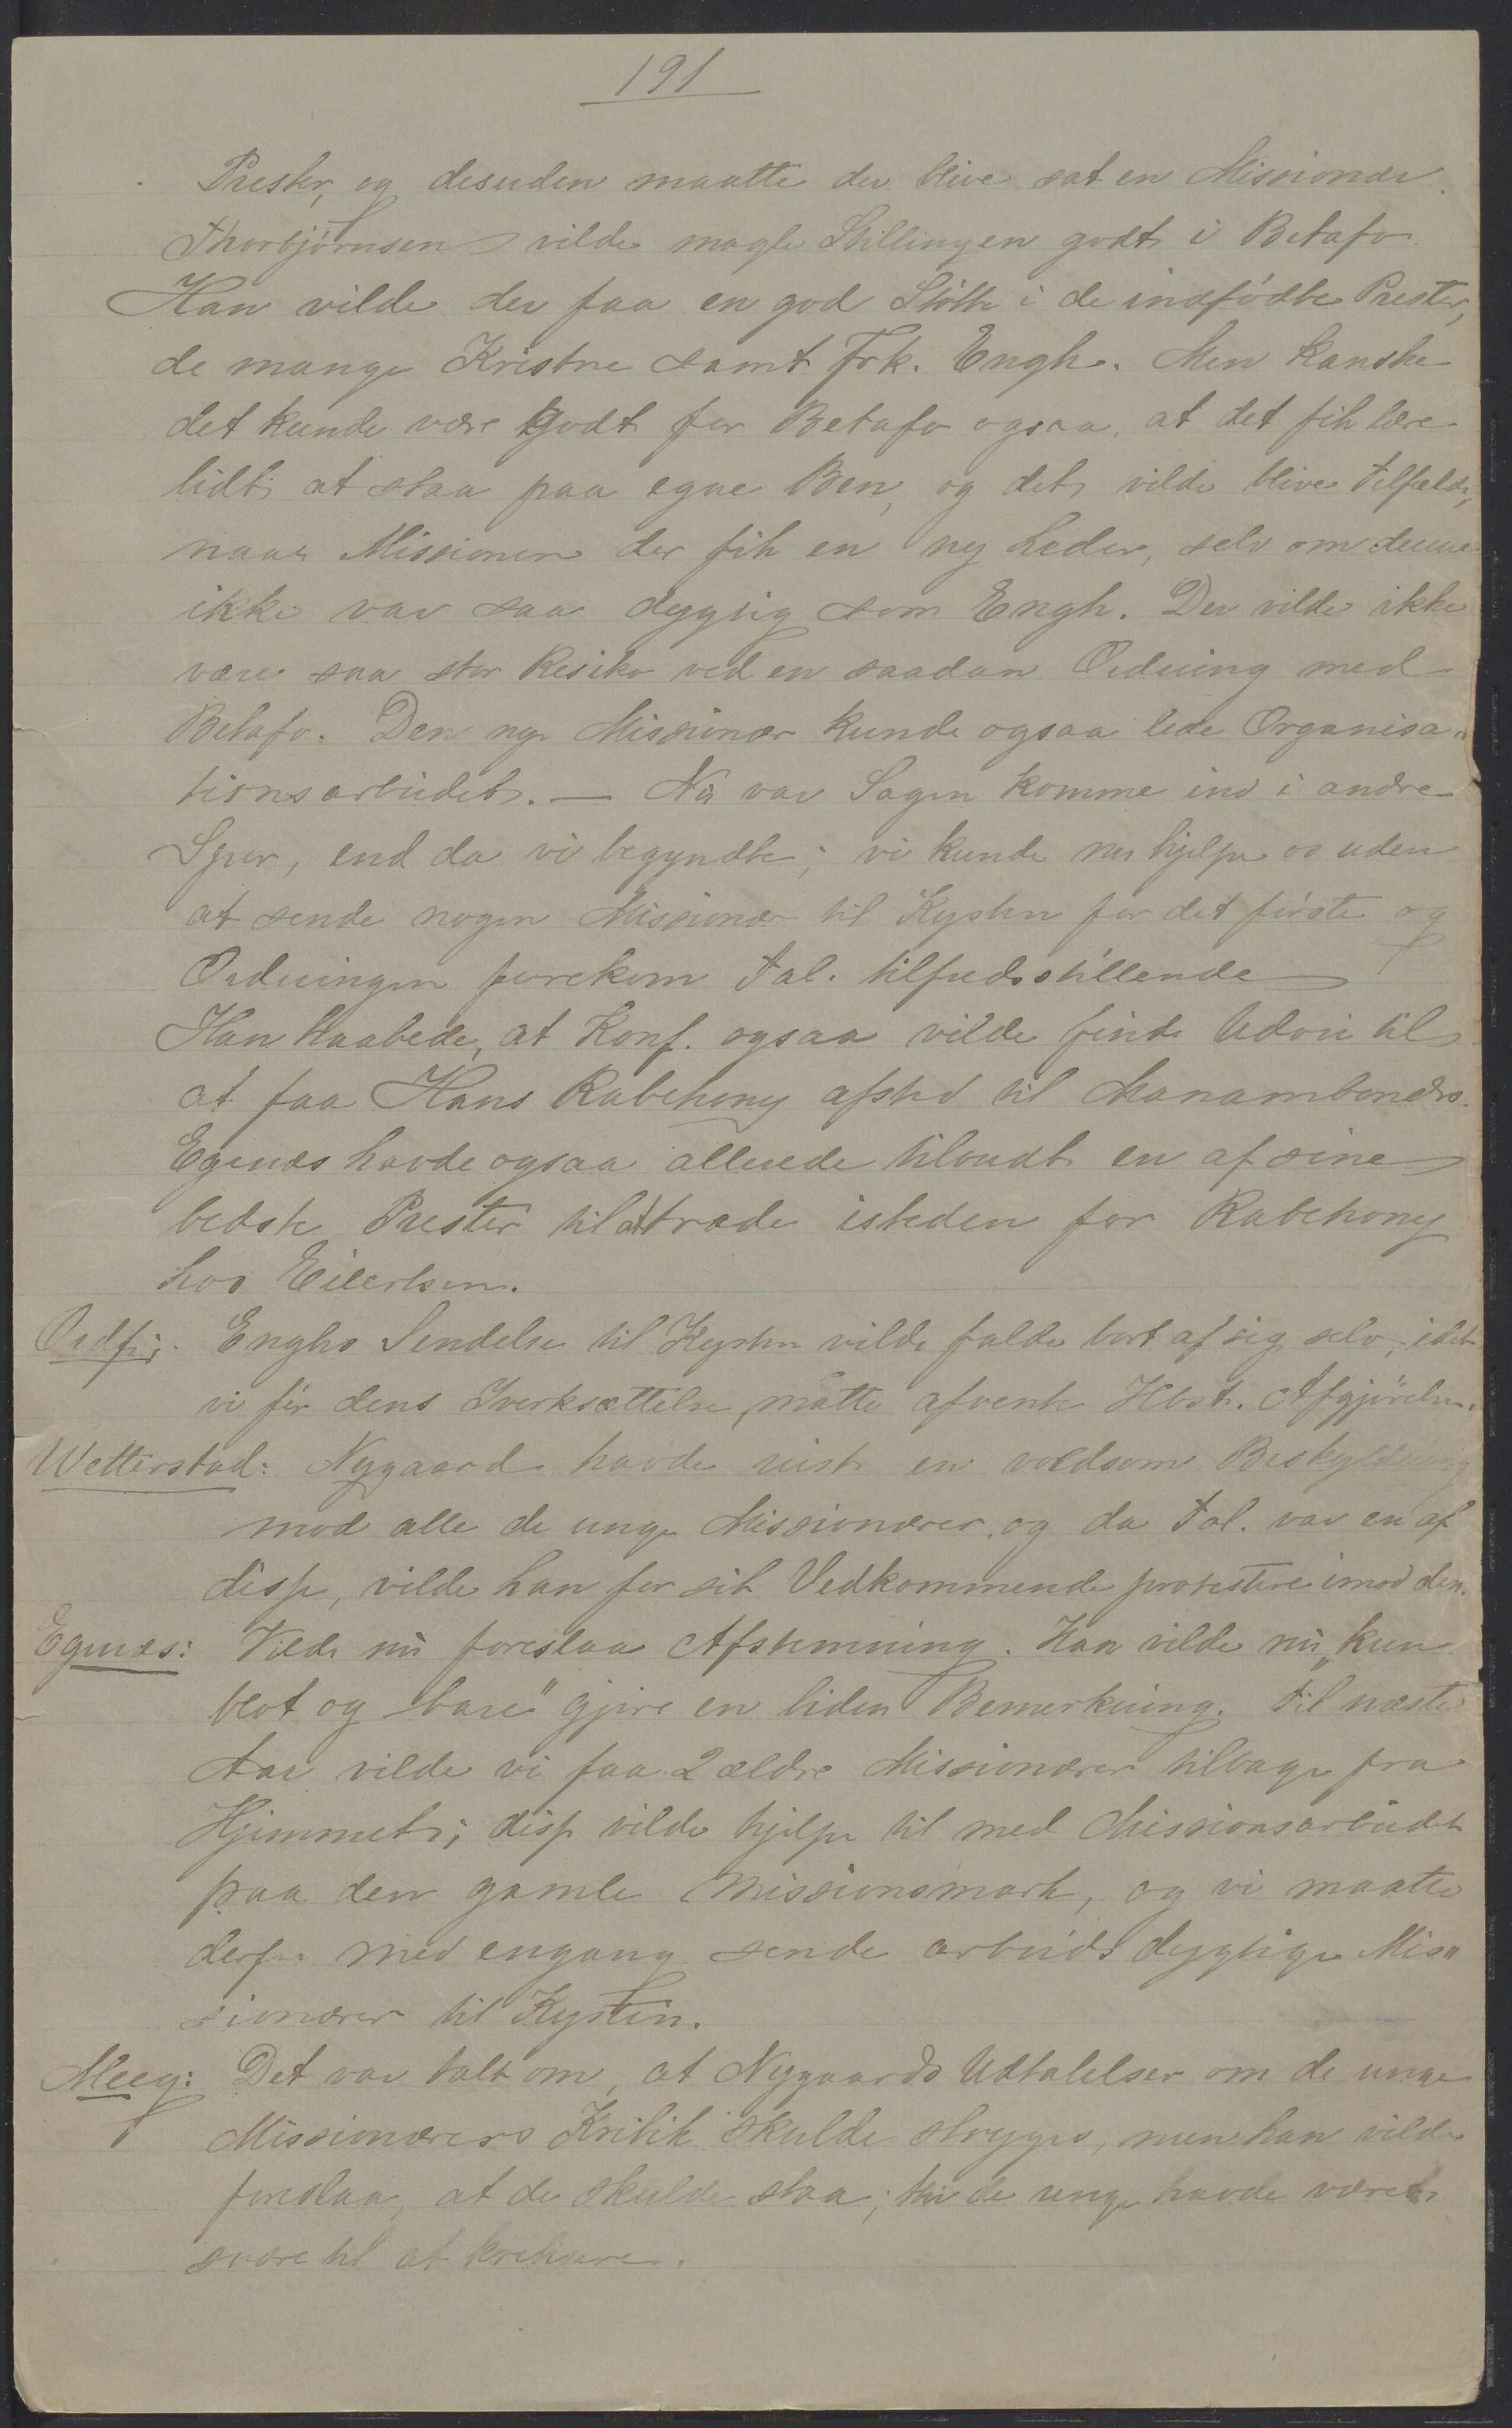 191
Prester, og desuden maatte der blive sat en Missionær.
Thorbjørnsen vilde magte Stillingen godt i Betafo.
Han vilde der faa en god Støtte i de indfødte Prester,
de mange Kristne samt Frk. Engh. Men kanske
det kunde være godt for Betafo ogsaa, at det fik lære
lidt at staa paa egne Ben, og det vilde blive Tilfældet,
naar Missionen der fik en ny Leder, selv om denne
ikke var saa dygtig som Engh. Der vilde ikke
være saa stor Resiko ved en saadan Ordning med
Betafo. Den nye Missionær kunde ogsaa lede Organisa-
tionsarbeidet. — Nu var Sagen komme ind i andre
Spor, end da vi begyndte; vi kunde nu hjelpe os uden
at sende nogen Missionær til Kysten for det første og
Ordningen forekom Tal. tilfredsstillende
Han haabede, at Konf. ogsaa vilde finde Udvei til
at faa Hans Rabehony afsted til Manambondro.
Egenæs havde ogsaa allerede tilbudt en af sine
bedste Prester til at træde isteden for Rabehony
hos Eilertsen.
Ordf.: Enghs Sendelse til Kysten vilde falde bort af sig selv, idet
vi før dens Iverksættelse måtte afvente Hbst. Afgjørelse.
Wetterstad: Nygaard havde reist en voldsom Beskyldning
mod alle de unge Missionærer, og da Tal. var en af
disse, vilde han for sit Vedkommende protestere imod den.
Egenæs: Vilde nu foreslaa Afstemning. Han vilde nu "kun
blot og bare" gjøre en liden Bemerkning. Til næste
Aar vilde vi faa 2 ældre Missionærer tilbage fra
Hjemmet; disse vilde hjelpe til med Missionsarbeidet
paa den gamle Missionsmark, og vi maatte
derfor med engang sende arbeidsdygtige Mis-
sionærer til Kysten.
Meeg: Det var talt om, at Nygaards Udtalelser om de unge
Missionærers Kritik skulde stryges, men han vilde
foreslaa, at de skulde staa; thi de unge havde været
svære til at kritisere.